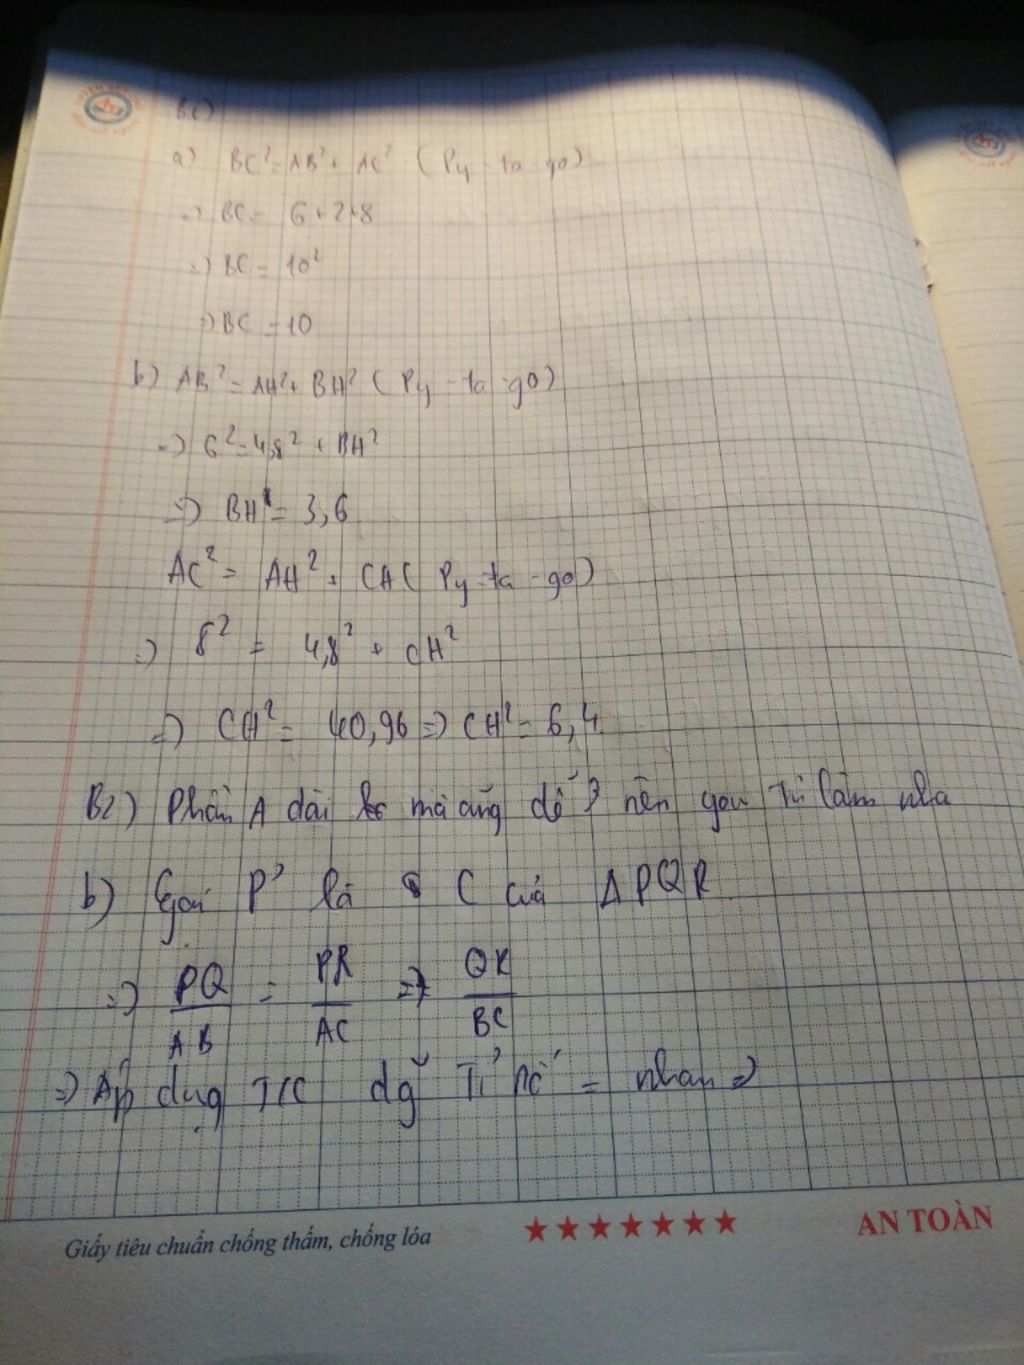 a) BC² = AB² + AC² (Py-ta-go)
=) BC = 6 + 2+8
=) BC = 10²
=) BC = 10
b) AB² = AH² + BH² (Py-ta-go)
=) 6² = 4,8² + BH²
=) BH = 3,6
AC² = AH² + CH (Py-ta-go)
=) 8² = 4,8² + CH²
=) CH² = 40,96 => CH² = 6,4
B2) Phần A dài mà cũng dễ nên you Tự làm nha
b) Gọi P' là C của ΔPQR
=) PQ/AB = PR/AC => QR/BC
=) Áp dụng T/C dãy Tỉ số = nhau =)
Giấy tiêu chuẩn chống thấm, chống lóa
★★★★★★★ AN TOÀN